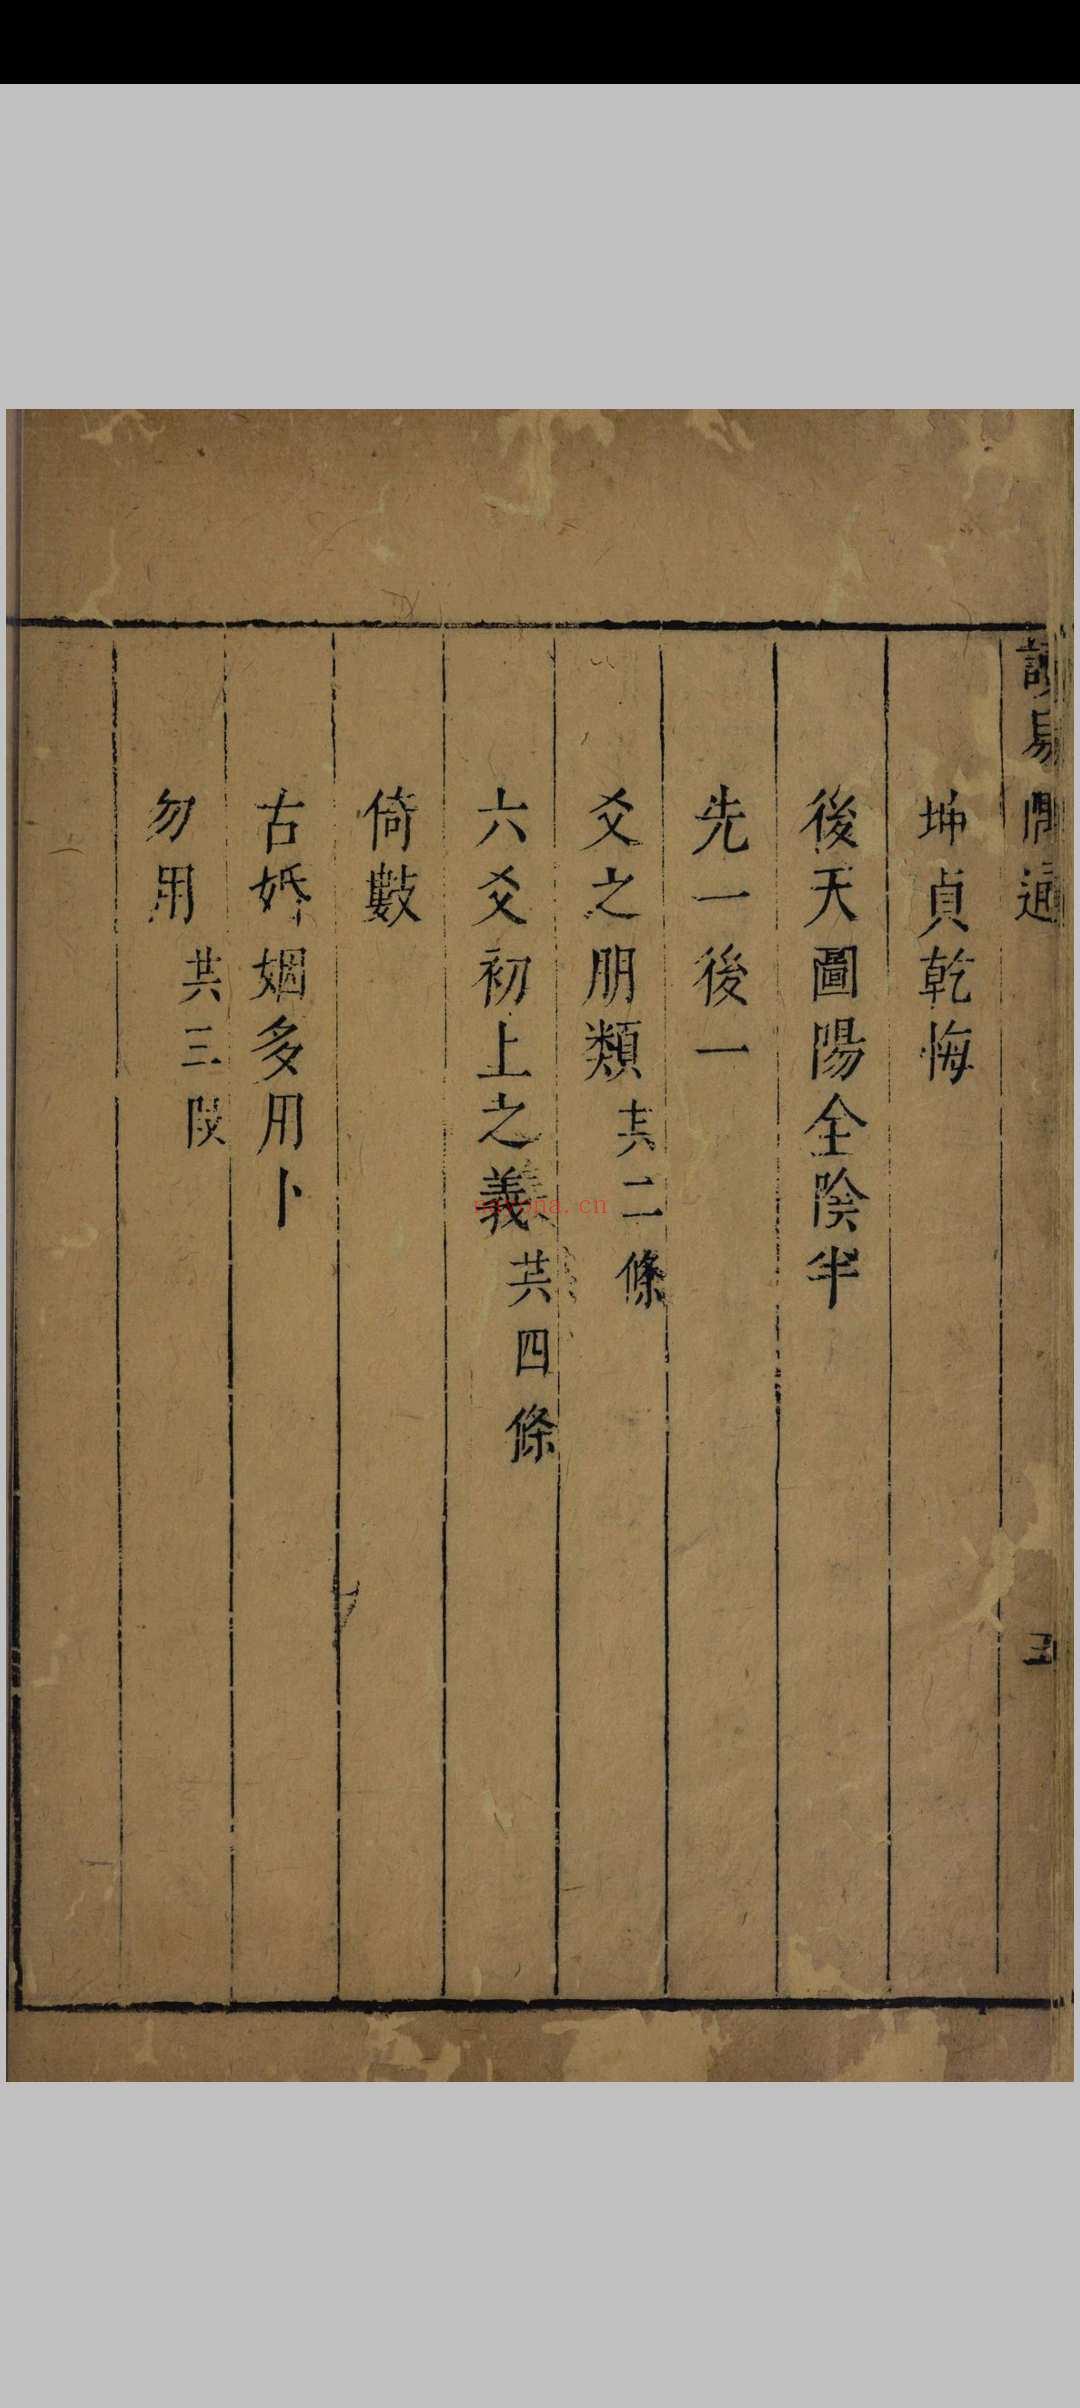 讀易閒通
坤貞乾悔
後天圖陽全陰半
先一後一
爻之朋類 共二條
六爻初上之義 共四條
倚數
古婚姻多用卜
勿用 共三段
nayona.cn